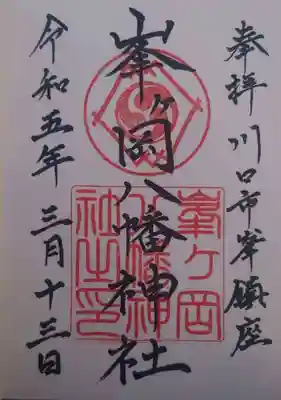 奉拝 川口市峯鎮座
峯ヶ岡八幡神社
峯ヶ岡八幡神社之印
令和五年 三月十三日